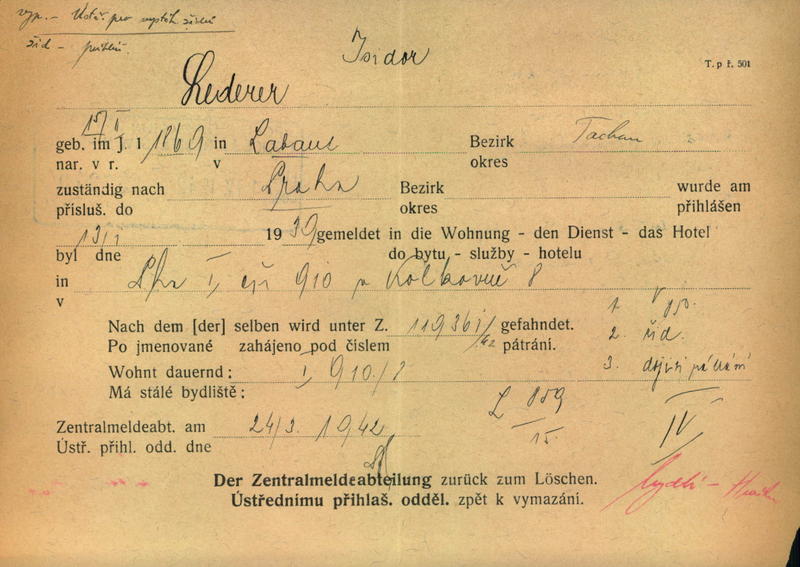 vyp. - Ústř. pro vystěh. židů
žid -
Isidor
T. p ř. 501
Lederer
15/II
geb. im J. 1 1869 in Labaut Bezirk Tachau
nar. v r. v okres
zuständig nach Praha Bezirk wurde am
přísluš. do okres přihlášen
13/I 19 39 gemeldet in die Wohnung - den Dienst - das Hotel
byl dne do bytu - služby - hotelu
in Pha I, čís 910 8
v
Nach dem [der] selben wird unter Z. 11936 gefahndet.
Po jmenované zahájeno pod číslem /42 pátrání.
1.
2. žid.
3.
Wohnt dauernd: I, 910/8
Má stálé bydliště:
L 859
15.
IV
Zentralmeldeabt. am 24/3. 1942
Ústř. přihl. odd. dne
Der Zentralmeldeabteilung zurück zum Löschen.
Ústřednímu přihlaš. odděl. zpět k vymazání.